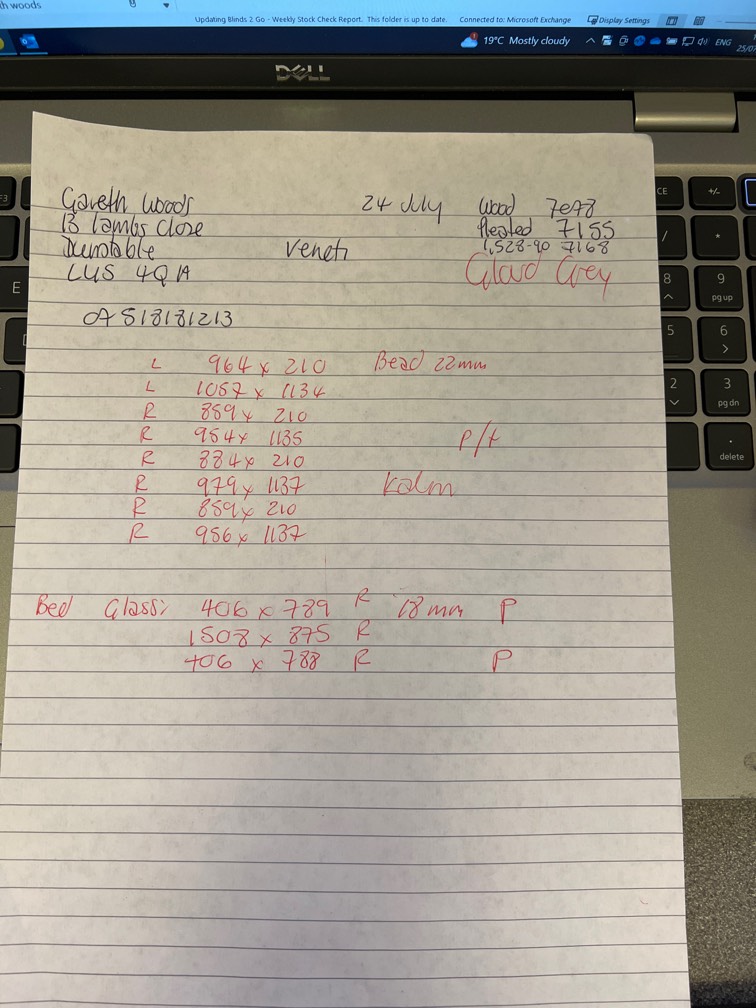 th woods
Updating Blinds 2 Go - Weekly Stock Check Report. This folder is up to date. Connected to: Microsoft Exchange Display Settings
19°C Mostly cloudy ENG
25/07
DELL
Gareth Woods 24 July Wood
13 Lambs Close Pleated 7155
Dunstable Veneti 1,528-90 7168
LU5 4QA Cloud Grey
07518181213
L 964 x 210 Bead 22mm
L 1057 x 1134
R 859 x 210
R 954 x 1135 P/t
R 884 x 210
R 979 x 1137 Kalm
R 859 x 210
R 956 x 1137
Bed Glass: 406 x 789 R 18mm P
1508 x 875 R
406 x 788 R P
F3
E
CE +/-
/ *
8 9 pg up
5 6
2 3 pg dn
. delete